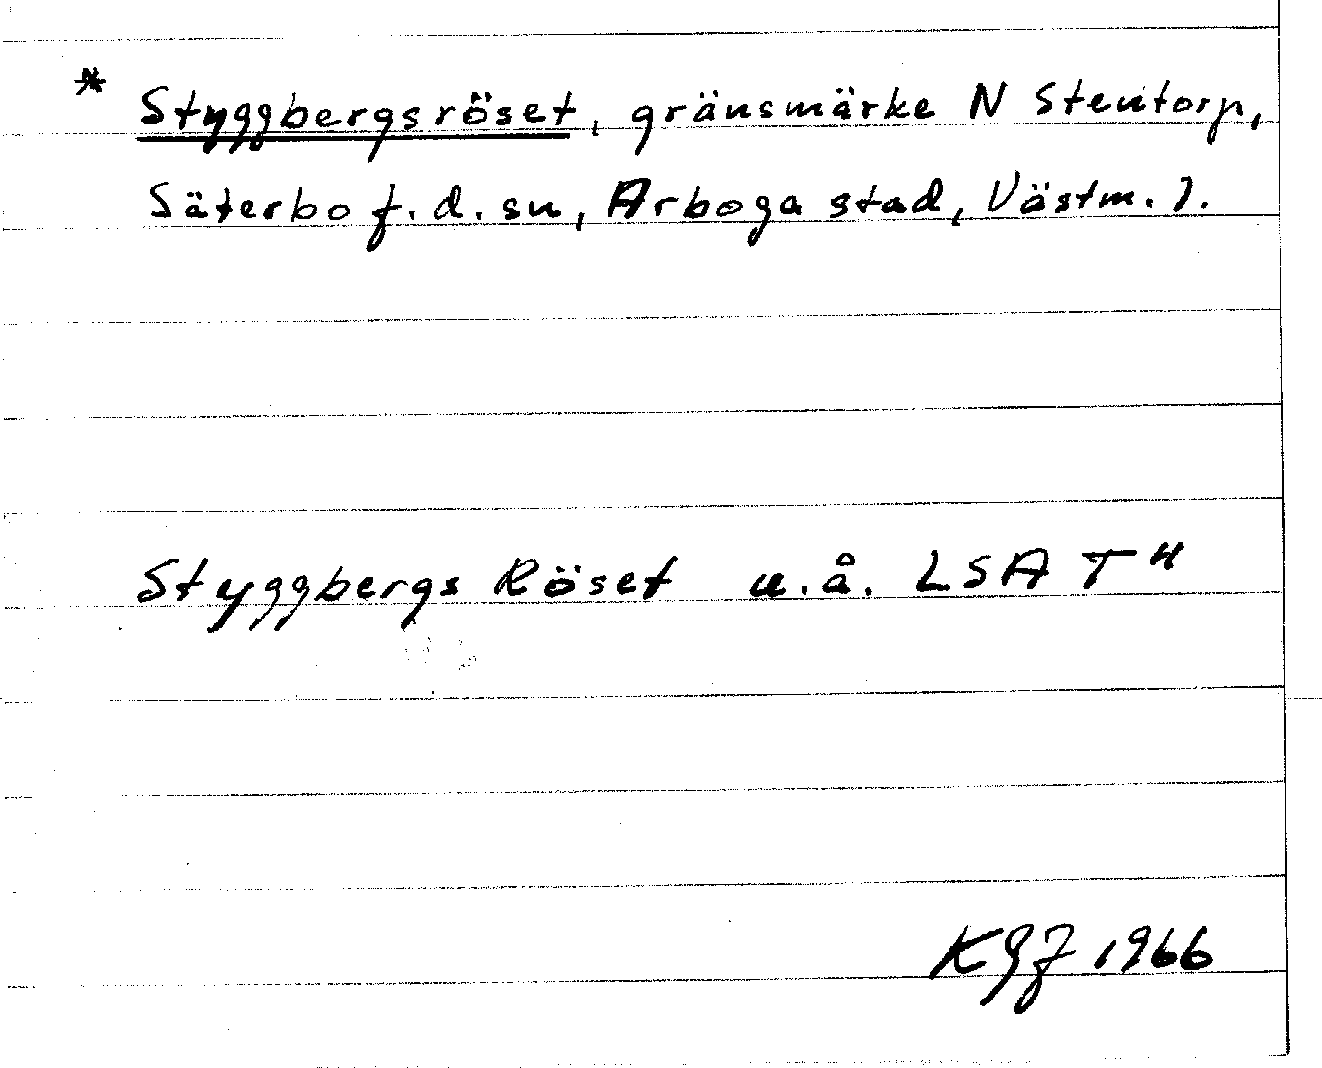 * Styggbergsröset, gränsmärke N Stentorp,
Säterbo f.d. sn, Arboga stad, Västm. l.
Styggbergs Röset u.å. LSA T"
KGJ 1966